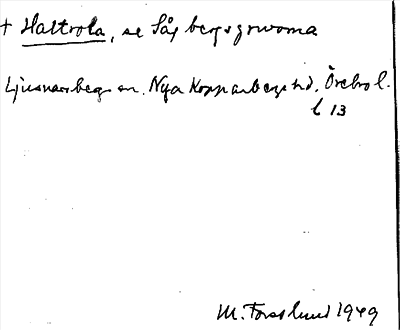 + Haltrola, se Sågbergsgruvorna
Ljusnarsbergs sn. Nya Kopparbergs hd. Örebro l.
b 13
M. Forsslund 1949